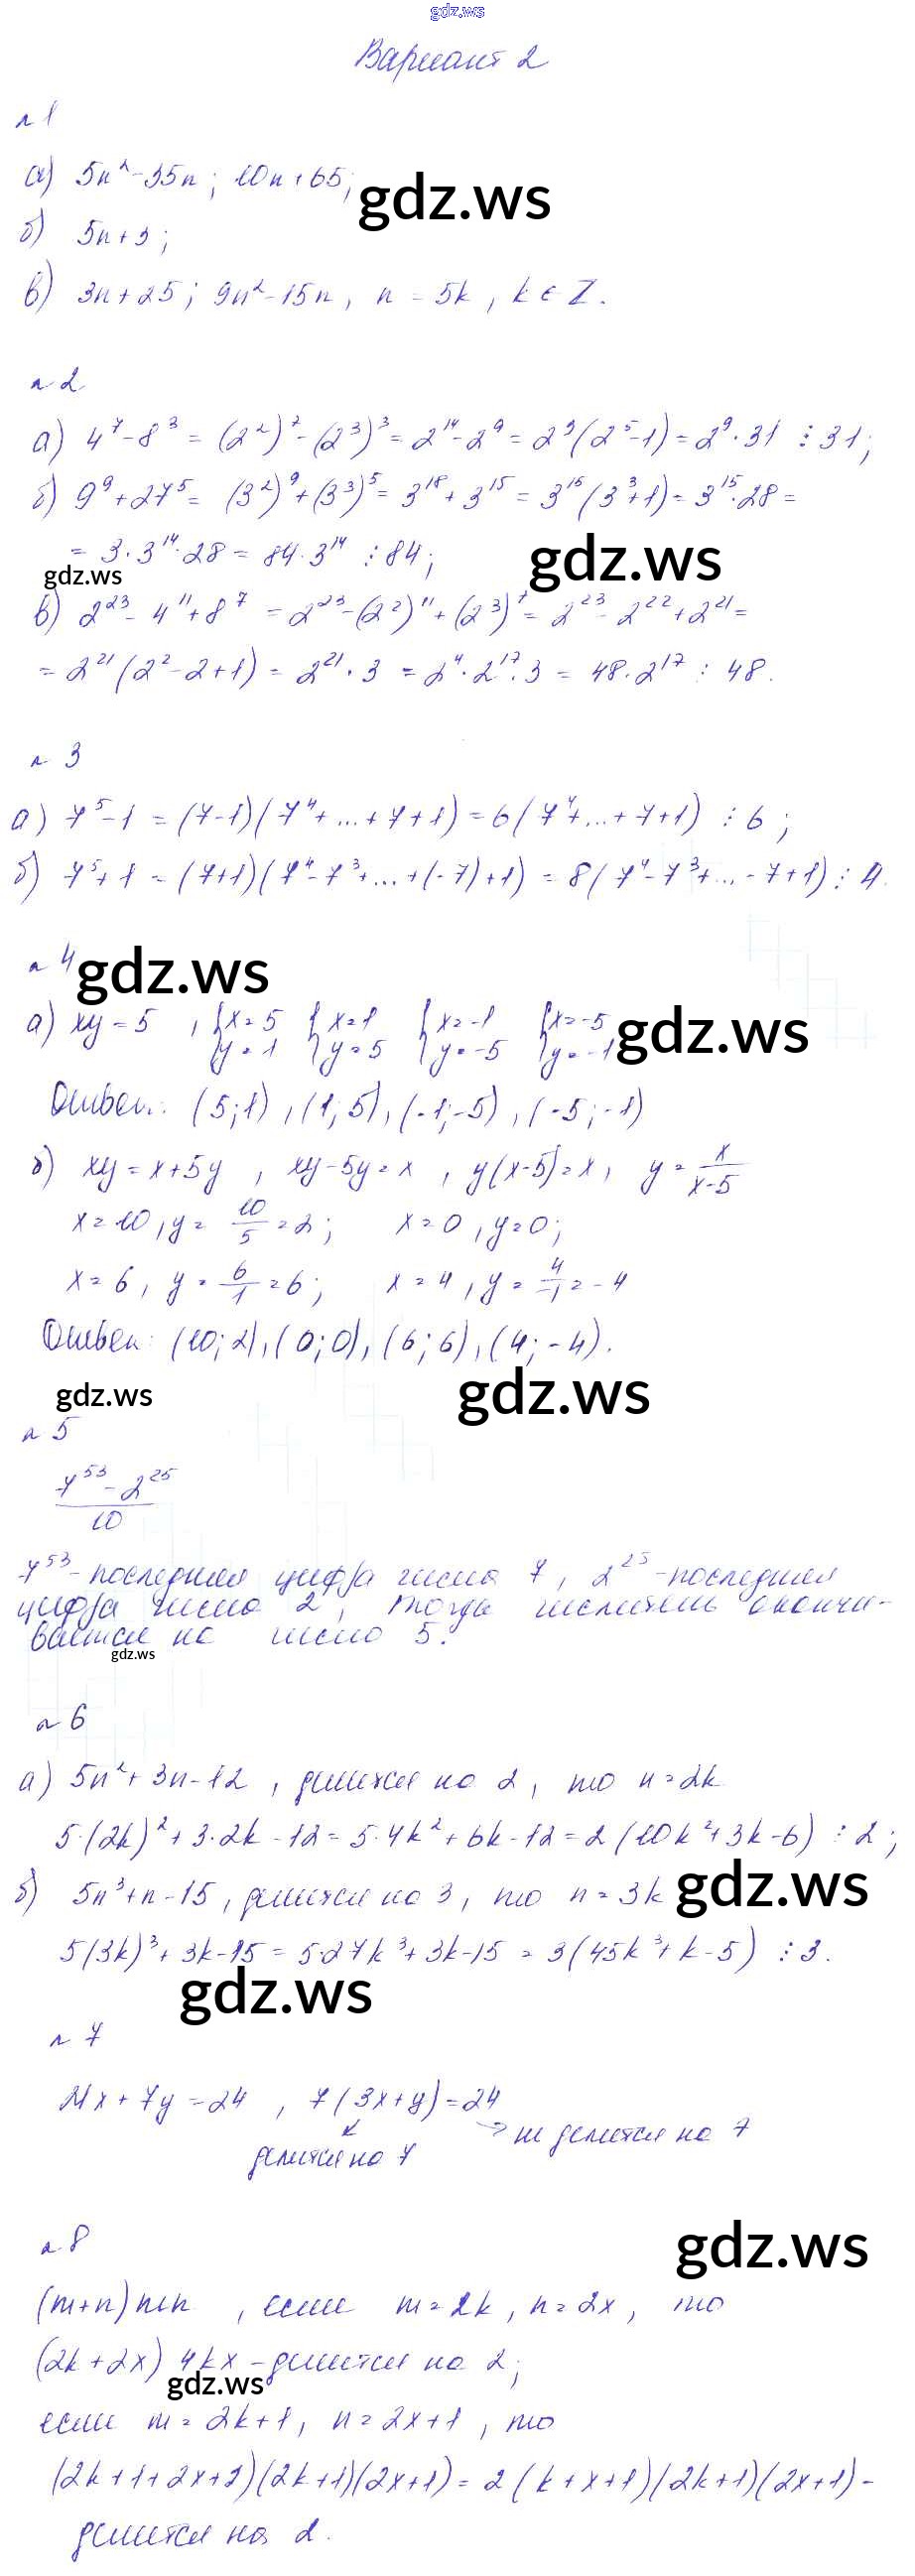 gdz.ws
Вариант 2
№1
а) 5n² - 35n; 10n + 65;
gdz.ws
б) 5n + 3;
в) 3n + 25; 9n² - 15n, n = 5k, k ∈ Z.
№2
а) 4⁷ - 8³ = (2²)⁷ - (2³)³ = 2¹⁴ - 2⁹ = 2⁹(2⁵ - 1) = 2⁹ · 31 ⋮ 31;
б) 9⁹ + 27⁵ = (3²)⁹ + (3³)⁵ = 3¹⁸ + 3¹⁵ = 3¹⁵(3³ + 1) = 3¹⁵ · 28 =
= 3 · 3¹⁴ · 28 = 84 · 3¹⁴ ⋮ 84;
gdz.ws
gdz.ws
в) 2²³ - 4¹¹ + 8⁷ = 2²³ - (2²)¹¹ + (2³)⁷ = 2²³ - 2²² + 2²¹ =
= 2²¹(2² - 2 + 1) = 2²¹ · 3 = 2⁴ · 2¹⁷ · 3 = 48 · 2¹⁷ ⋮ 48.
№ 3
а) 7⁵ - 1 = (7 - 1)(7⁴ + ... + 7 + 1) = 6(7⁴ + ... + 7 + 1) ⋮ 6;
б) 7⁵ + 1 = (7 + 1)(7⁴ - 7³ + ... + (-7) + 1) = 8(7⁴ - 7³ + ... - 7 + 1) ⋮ 4.
№ 4
gdz.ws
а) xy = 5, { x = 5 { x = 1 { x = -1 { x = -5
y = 1 y = 5 y = -5 y = -1
gdz.ws
Ответ: (5; 1), (1; 5), (-1; -5), (-5; -1)
б) xy = x + 5y, xy - 5y = x, y(x - 5) = x, y = x/(x-5)
x = 10, y = 10/5 = 2; x = 0, y = 0;
x = 6, y = 6/1 = 6; x = 4, y = 4/-1 = -4
Ответ: (10; 2), (0; 0), (6; 6), (4; -4).
gdz.ws
gdz.ws
№ 5
(7⁵³ - 2²⁵)/10
7⁵³ - последняя цифра числа 7, 2²⁵ - последняя
цифра числа 2, тогда числитель оканчи-
вается на число 5.
gdz.ws
№ 6
а) 5n² + 3n - 12, делится на 2, то n = 2k
5·(2k)² + 3·2k - 12 = 5·4k² + 6k - 12 = 2(10k² + 3k - 6) ⋮ 2;
б) 5n³ + n - 15, делится на 3, то n = 3k
gdz.ws
5(3k)³ + 3k - 15 = 5·27k³ + 3k - 15 = 3(45k³ + k - 5) ⋮ 3.
gdz.ws
№ 7
21x + 7y = 24, 7(3x + y) = 24
↙ → не делится на 7
делится на 7
№ 8
gdz.ws
(m + n)mn, если m = 2k, n = 2x, то
(2k + 2x) 4kx - делится на 2;
gdz.ws
если m = 2k + 1, n = 2x + 1, то
(2k + 1 + 2x + 1)(2k + 1)(2x + 1) = 2(k + x + 1)(2k + 1)(2x + 1) -
делится на 2.